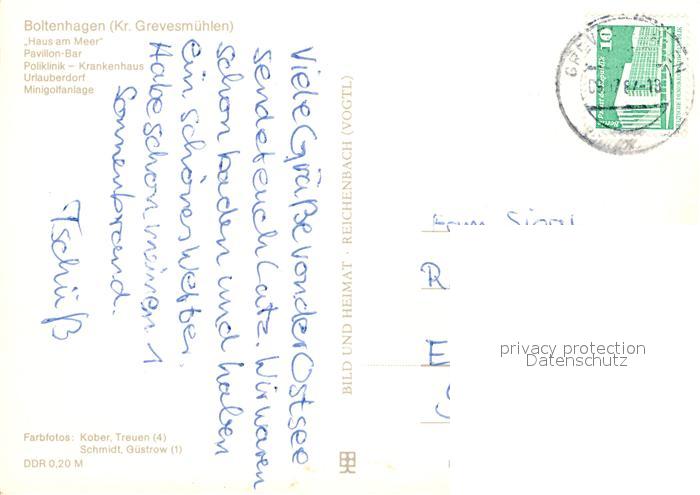 Boltenhagen (Kr. Grevesmühlen)
„Haus am Meer"
Pavillon-Bar
Poliklinik – Krankenhaus
Urlauberdorf
Minigolfanlage
Viele Grüße von der Ostsee
sendet euch Latz. Wir waren
schon baden und haben
ein schönes Wetter.
Habe schon meinen 1
Sonnenbrand.
Tschüß
BILD UND HEIMAT · REICHENBACH (VOGTL)
10
R
E
privacy protection
Datenschutz
Farbfotos: Kober, Treuen (4)
Schmidt, Güstrow (1)
DDR 0,20 M